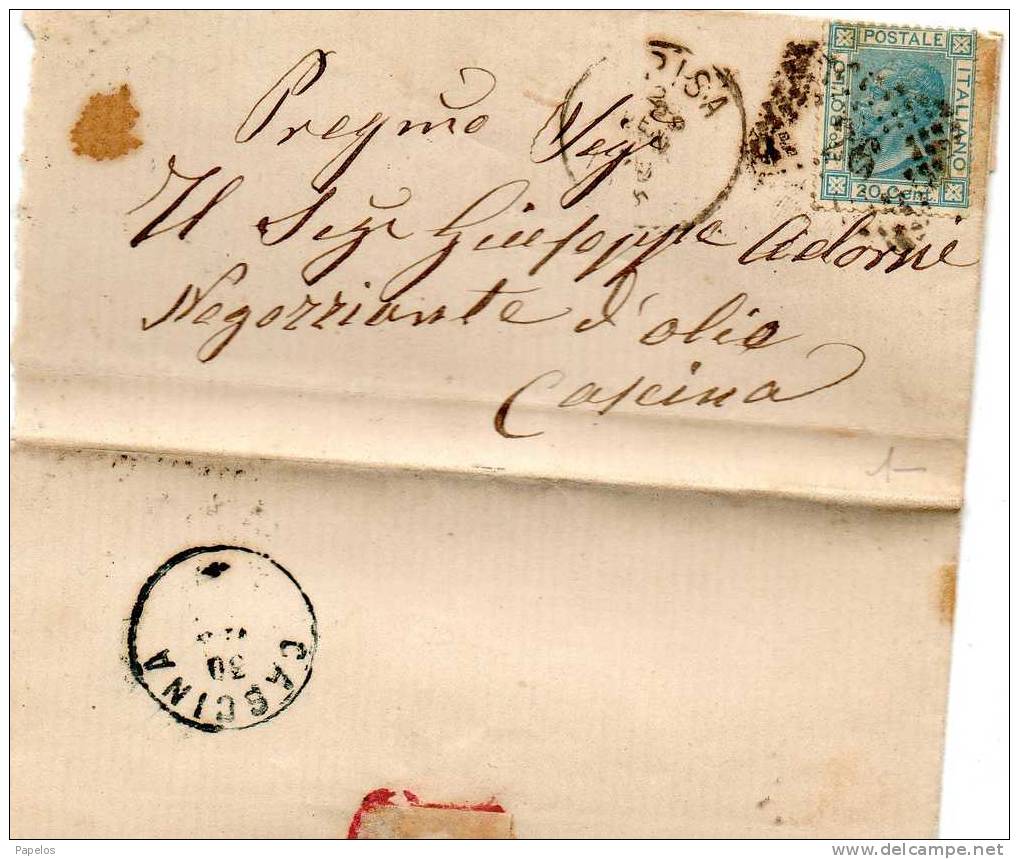 POSTALE
ITALIANO
FRANCOBOLLO
20 Cent.
PISA
Pregmo Sigr
Il Sigr Giuseppe Adorni
Negozziante d'olio
Cascina
CASCINA
30
Papelos
www.delcampe.net